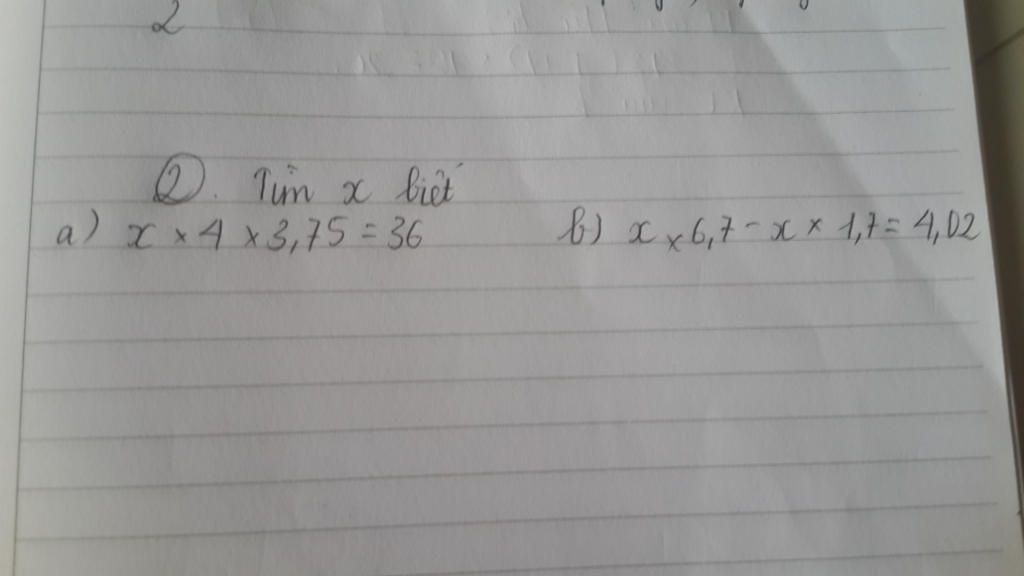 2
②. Tìm x biết
a) x × 4 × 3,75 = 36 b) x × 6,7 - x × 1,7 = 4,02